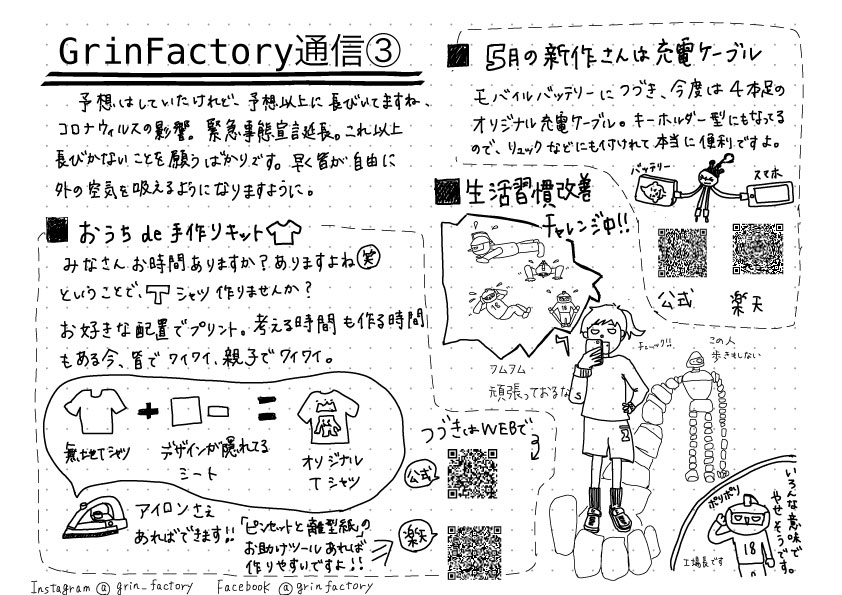 GrinFactory通信③
予想はしていたけれど、予想以上に長びいてますね、
コロナウィルスの影響。緊急事態宣言延長。これ以上
長びかないことを願うばかりです。早く皆が自由に
外の空気を吸えるようになりますように。
おうち de 手作りキット
みなさんお時間ありますか？ありますよね笑
ということで、Tシャツ作りませんか？
お好きな配置でプリント。考える時間も作る時間
もある今、皆でワイワイ、親子でワイワイ。
無地Tシャツ
+
デザインが隠れてる
シート
=
オリジナル
Tシャツ
アイロンさえ
あればできます!!
「ピンセットと離型紙」の
お助けツールあれば
作りやすいですよ!!
つづきはWEBで
公式
楽天
5月の新作さんは充電ケーブル
モバイルバッテリーにつづき、今度は4本足の
オリジナル充電ケーブル。キーホルダー型にもなってる
ので、リュックなどにも付けれて本当に便利ですよ。
バッテリー
スマホ
公式
楽天
生活習慣改善
チャレンジ中!!
18
18
フムフム
頑張っておるな
チェック!!
S
この人
歩きもしない
ポリポリ
18
工場長です
いろんな意味で
やせそうです。
Instagram @ grin_factory Facebook @grinfactory